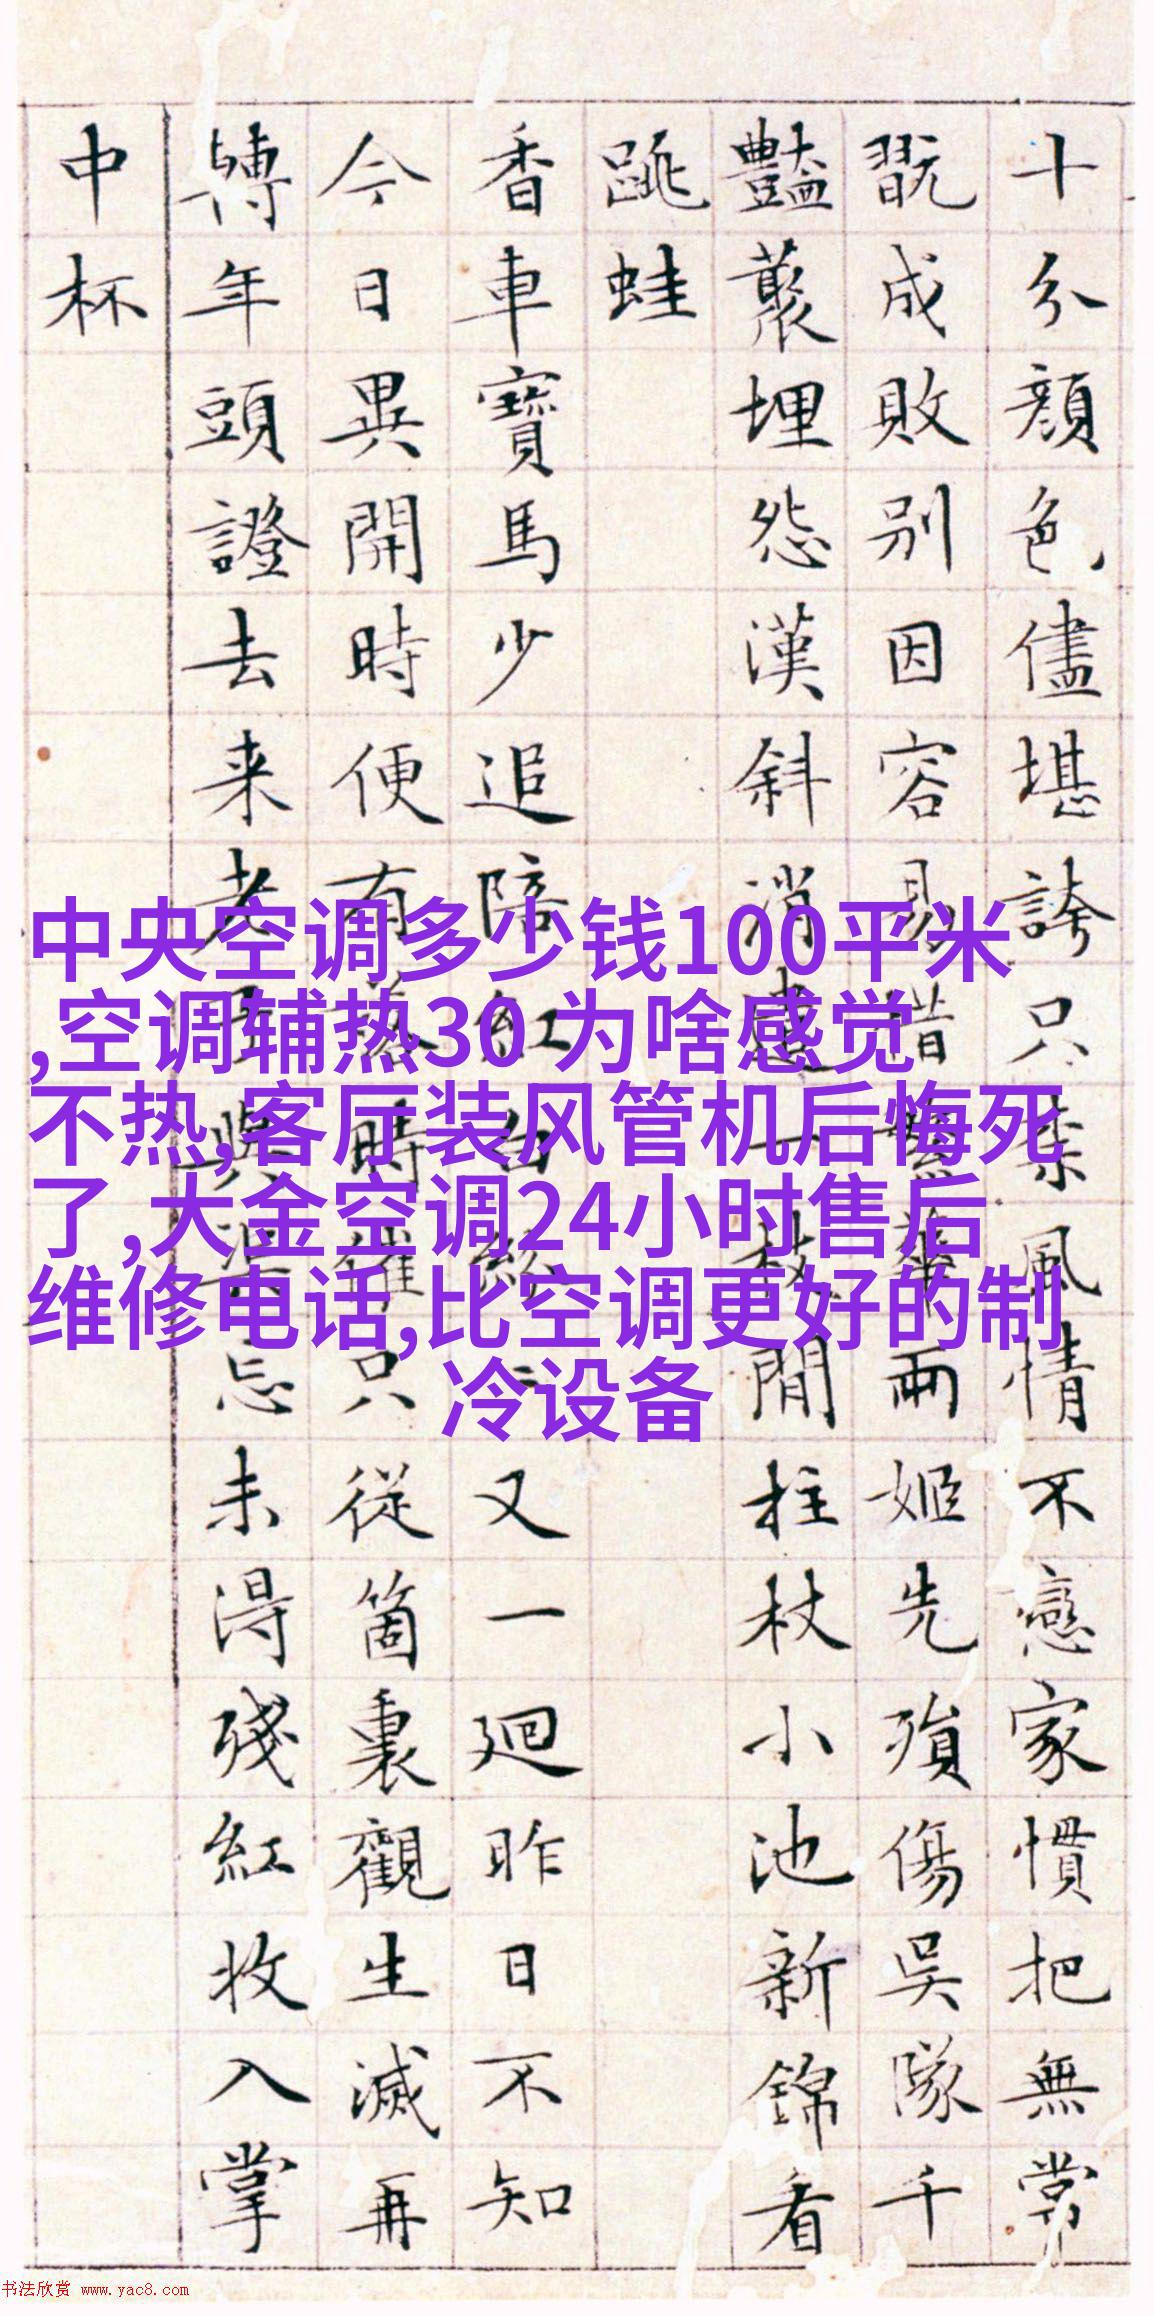 十分顔色儘堪誇只柰風情不戀家慣把無常
翫成敗別因容易惜華兩姬先殞傷吳隊千
豔叢埋怨漢斜消盡一枝閒拄杖小池新錦看
跳蛙
香車寶馬少追陪紅白紛紛又一廻昨日不知
今日異開時便有落時催只從箇裏觀生滅再
轉年頭證去来老與渠忘未得殘紅收入掌
中杯
中央空调多少钱100平米
,空调辅热30 为啥感觉
不热,客厅装风管机后悔死
了,大金空调24小时售后
维修电话,比空调更好的制
冷设备
书法欣赏 www.yac8.com